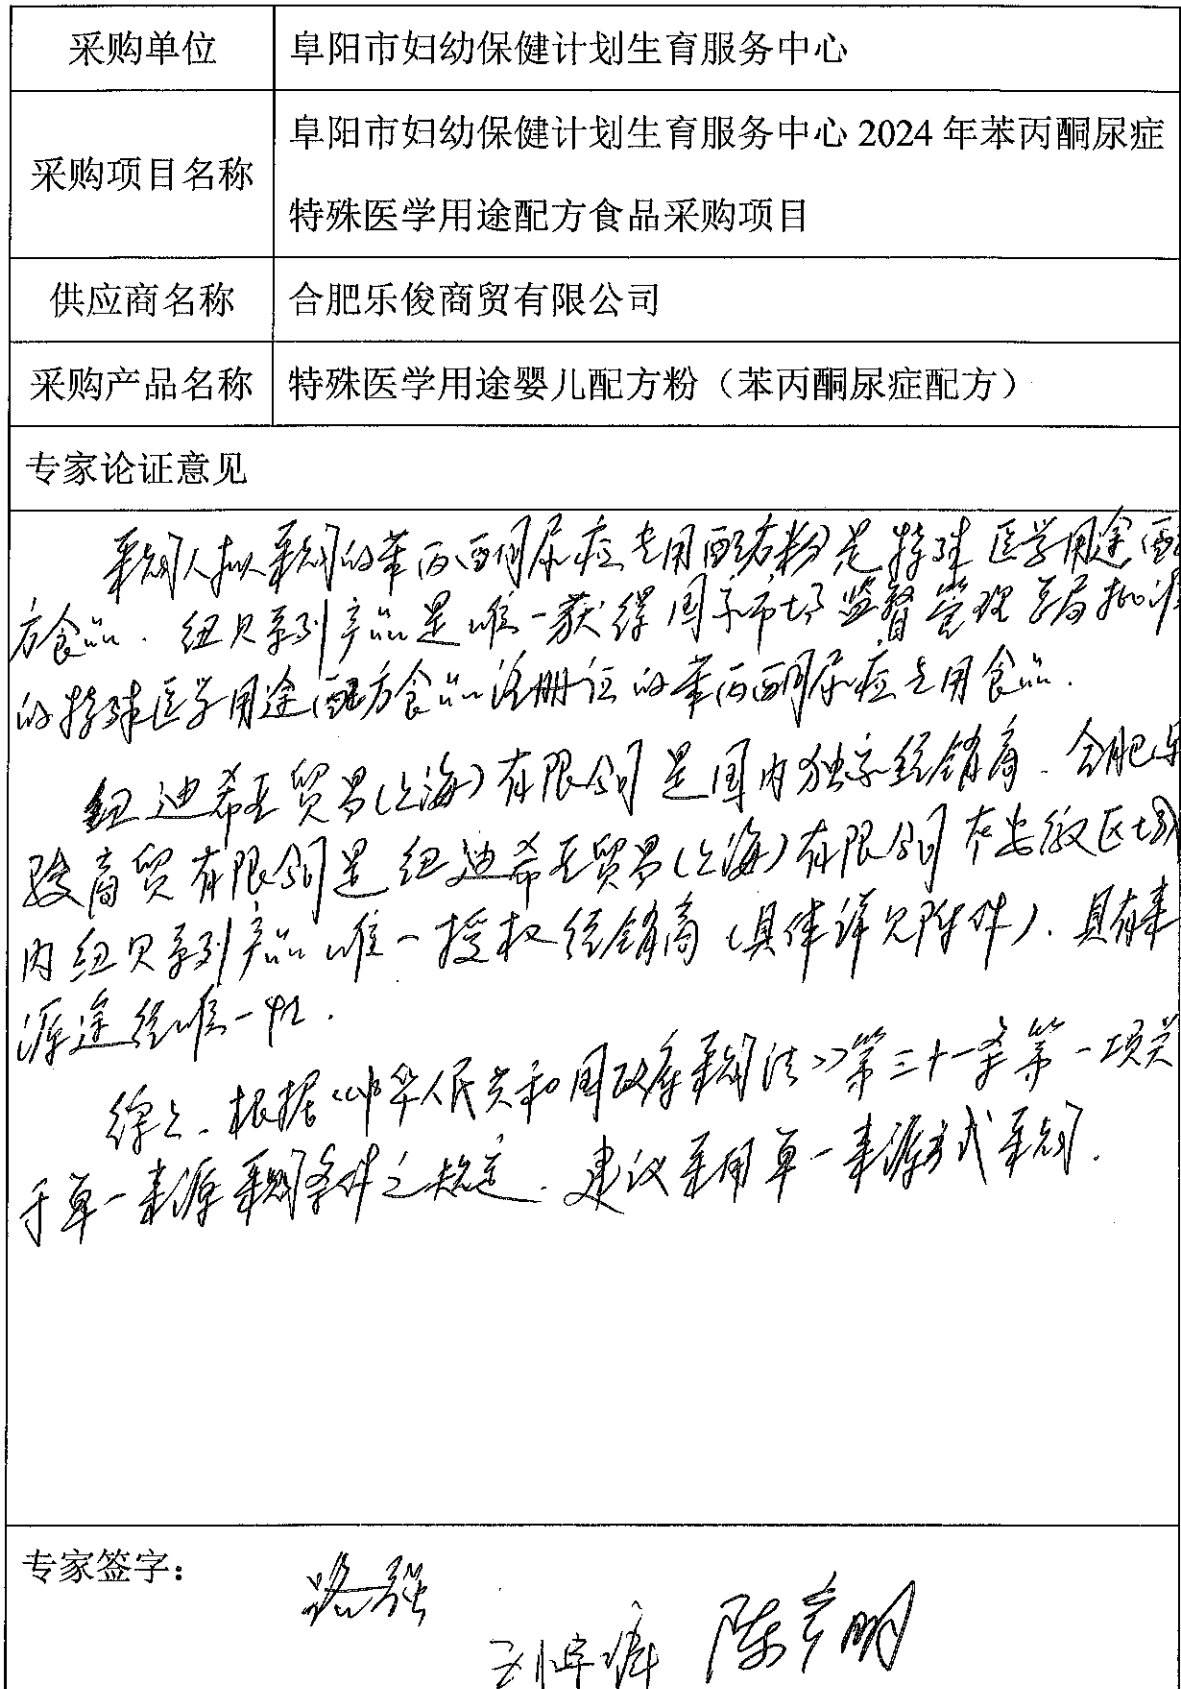 采购单位
阜阳市妇幼保健计划生育服务中心
采购项目名称
阜阳市妇幼保健计划生育服务中心 2024 年苯丙酮尿症
特殊医学用途配方食品采购项目
供应商名称
合肥乐俊商贸有限公司
采购产品名称
特殊医学用途婴儿配方粉（苯丙酮尿症配方）
专家论证意见
采购人拟采购的苯丙酮尿症专用配方粉是特殊医学用途配
方食品. 纽贝系列产品是唯一获得国家市场监督管理总局批准
的特殊医学用途配方食品注册证的苯丙酮尿症专用食品.
纽迪希亚贸易(上海)有限公司是国内独家经销商. 合肥乐
骏商贸有限公司是纽迪希亚贸易(上海)有限公司在安徽区域
内纽贝系列产品唯一授权经销商(具体详见附件). 具有来
源途径唯一性.
综上. 根据《中华人民共和国政府采购法》第三十一条第一项关
于单一来源采购条件之规定. 建议采用单一来源方式采购.
专家签字：
路强